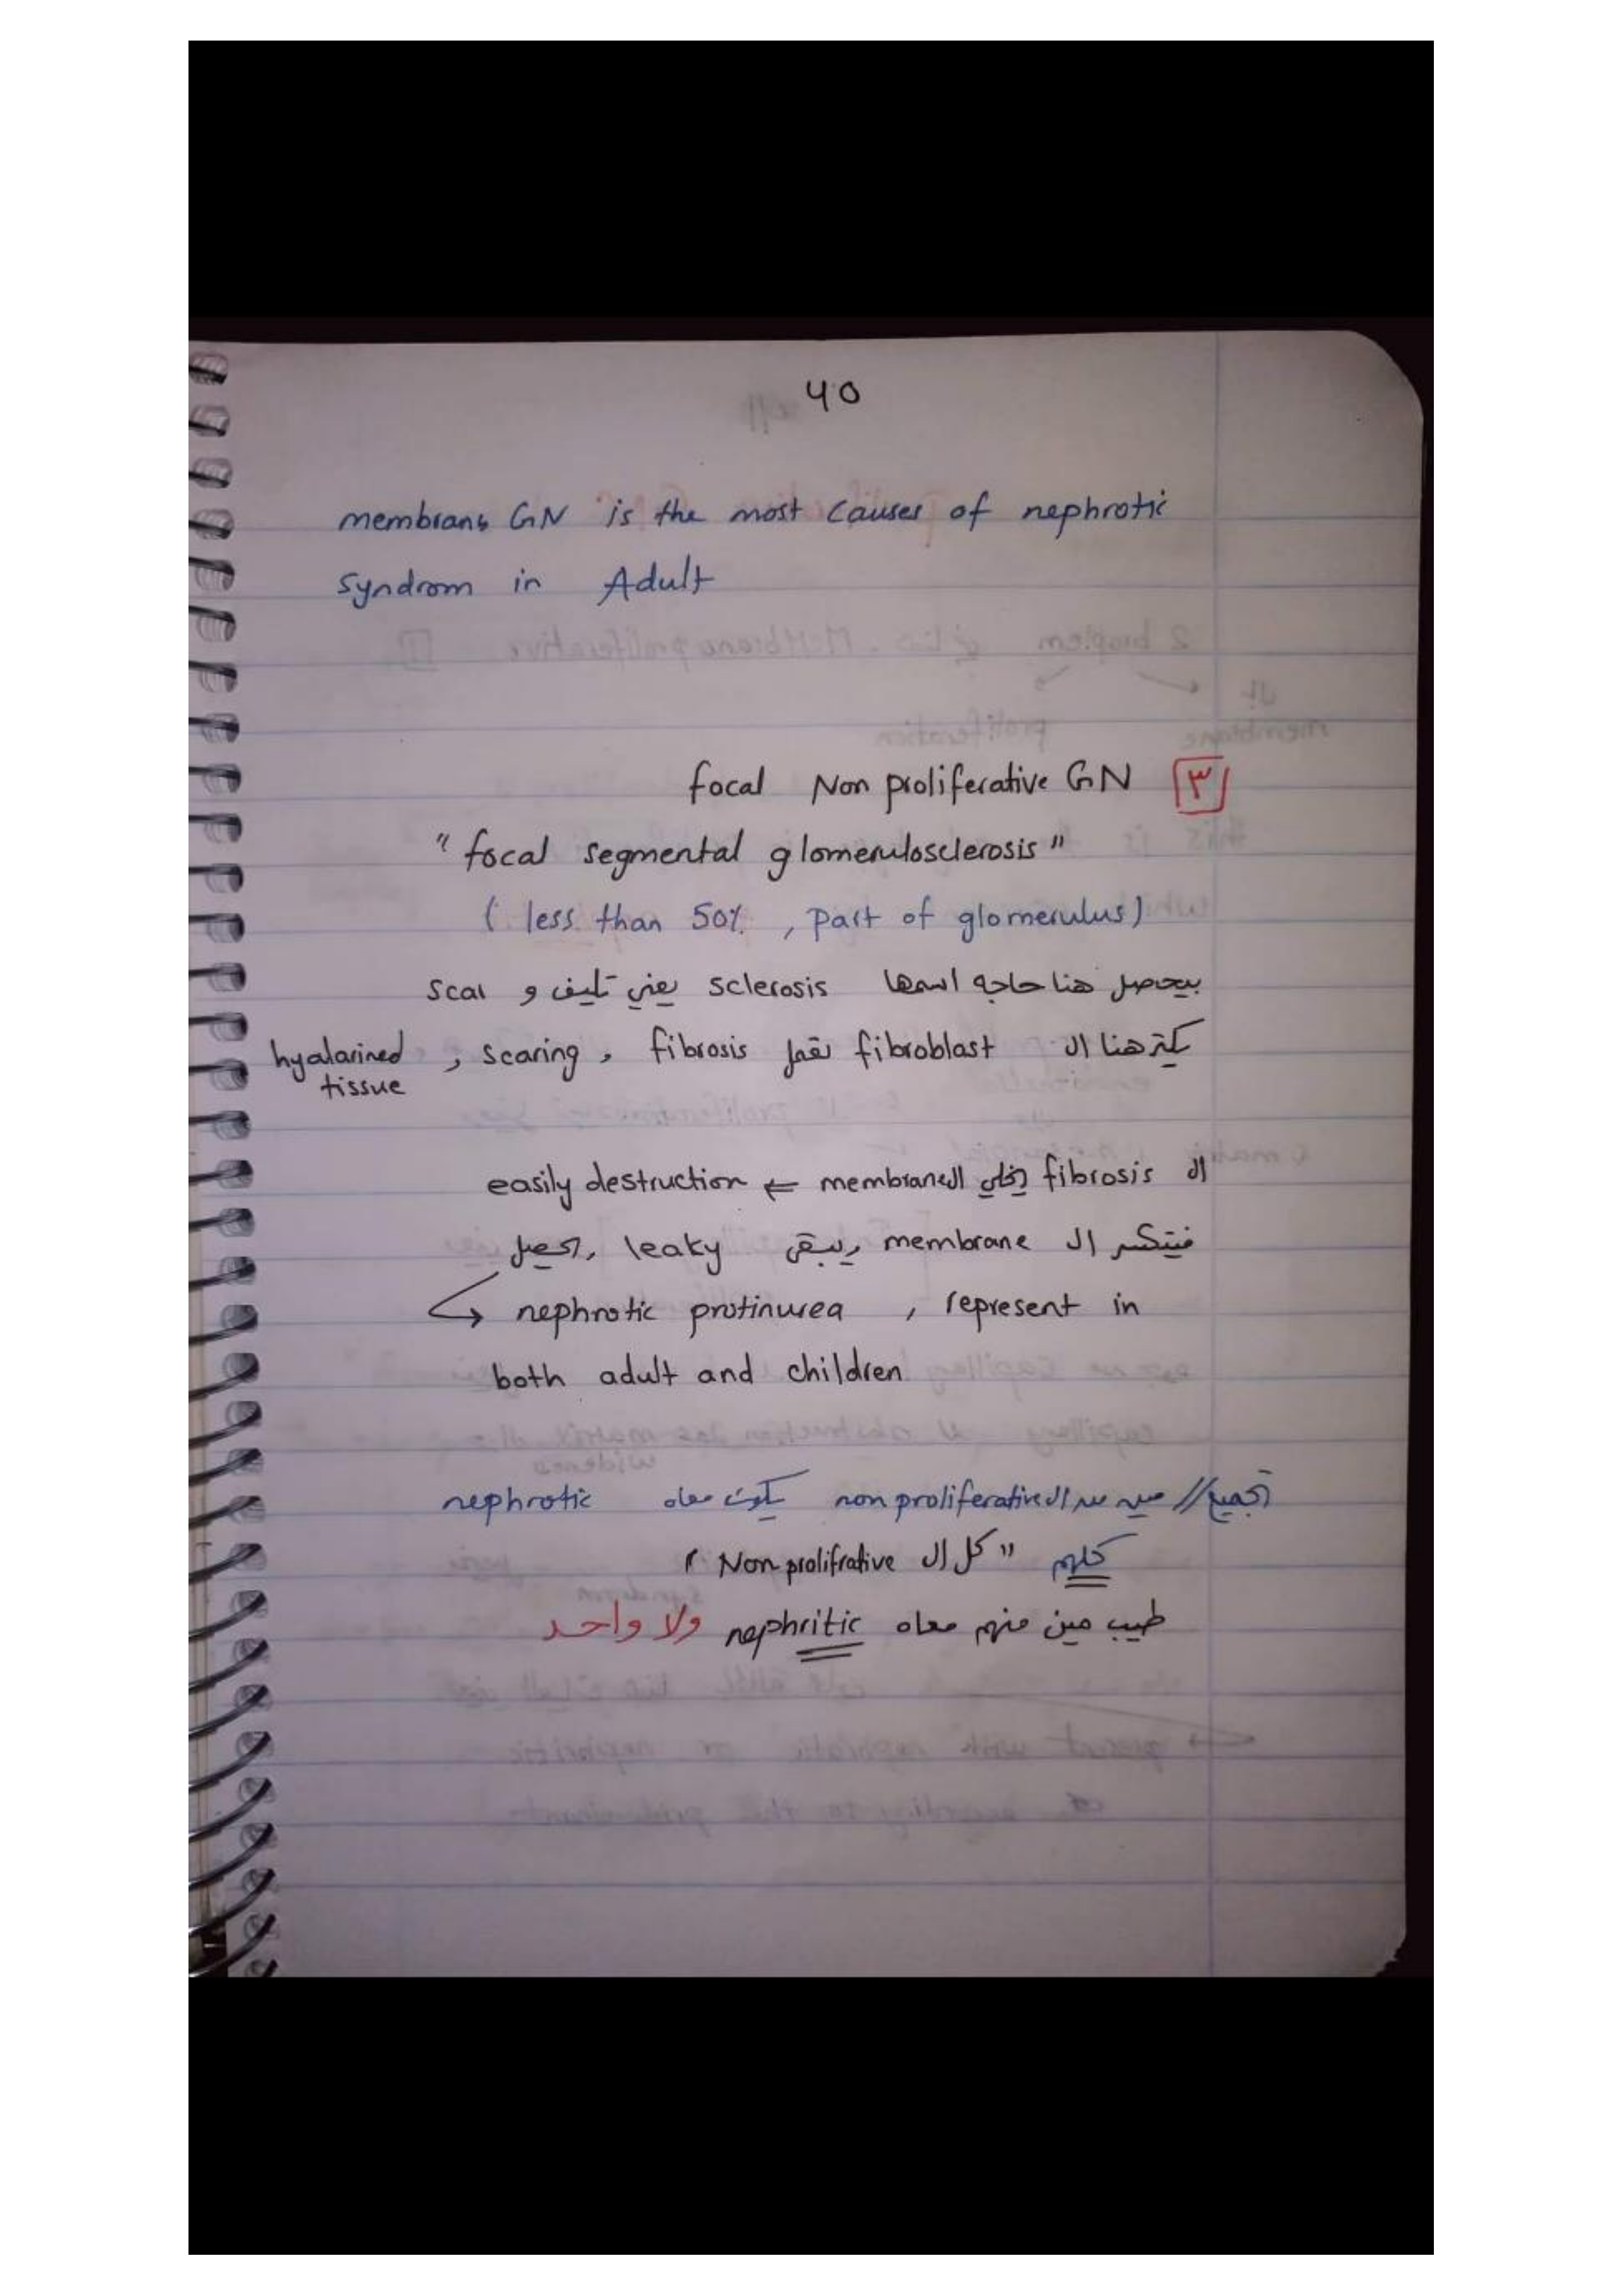 40
membrans GN is the most causes of nephrotic
syndrom in Adult
focal Non proliferative GN ٣
" focal segmental glomerulosclerosis "
( less than 50% , part of glomerulus )
بيحصل هنا حاجه اسمها sclerosis يعني تليف و scar
كتر هنا ال fibroblast تعمل fibrosis , scaring , hyalarined
tissue
ال fibrosis يخلي ال membrane ⇐ easily destruction
فيتكسر ال membrane ويبقى leaky ويحصل
↳ nephrotic protinurea , represent in
both adult and children
تجميع // مين من ال non proliferative يكون معاه nephrotic
كلهم " كل ال Non prolifrative "
طيب مين منهم معاه nephritic ولا واحد